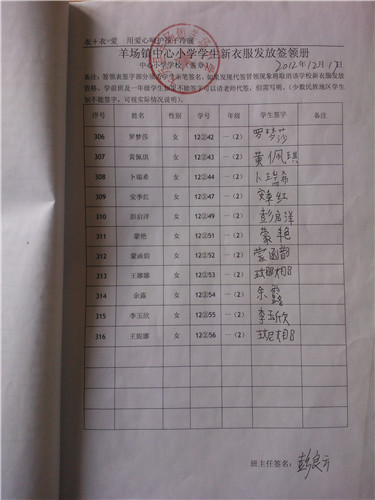 衣+衣=爱 用爱心呵护孩子冷暖
羊场镇中心小学学生新衣服发放签领册
中心小学学校(盖章) 2012年12月17日
备注:签领表签字部分须为学生亲笔签名,如果发现代签冒领现象将取消该学校新衣服发放
资格。学前班及一年级学生如果不能签字可以请老师代签,但需写明。(少数民族地区学生
如不能签字,可视实际情况说明)。
序号 姓名 性别 学号 年级 学生签字 备注
306 罗梦莎 女 12②42 一(2) 罗梦莎
307 黄佩琪 女 12②43 一(2) 黄佩琪
308 卜瑞希 女 12②44 一(2) 卜瑞希
309 安季红 女 12②47 一(2) 安季红
310 彭启洋 女 12②49 一(2) 彭启洋
311 蒙艳 女 12②51 一(2) 蒙艳
312 蒙函韵 女 12②52 一(2) 蒙函韵
313 王娜娜 女 12②53 一(2)
314 余露 女 12②54 一(2) 余露
315 李玉欣 女 12②55 一(2) 李玉欣
316 王妮娜 女 12②56 一(2)
班主任签名:彭良云